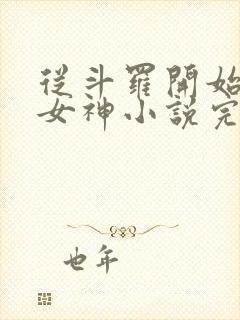 從斗羅開始
女神小說完
也年